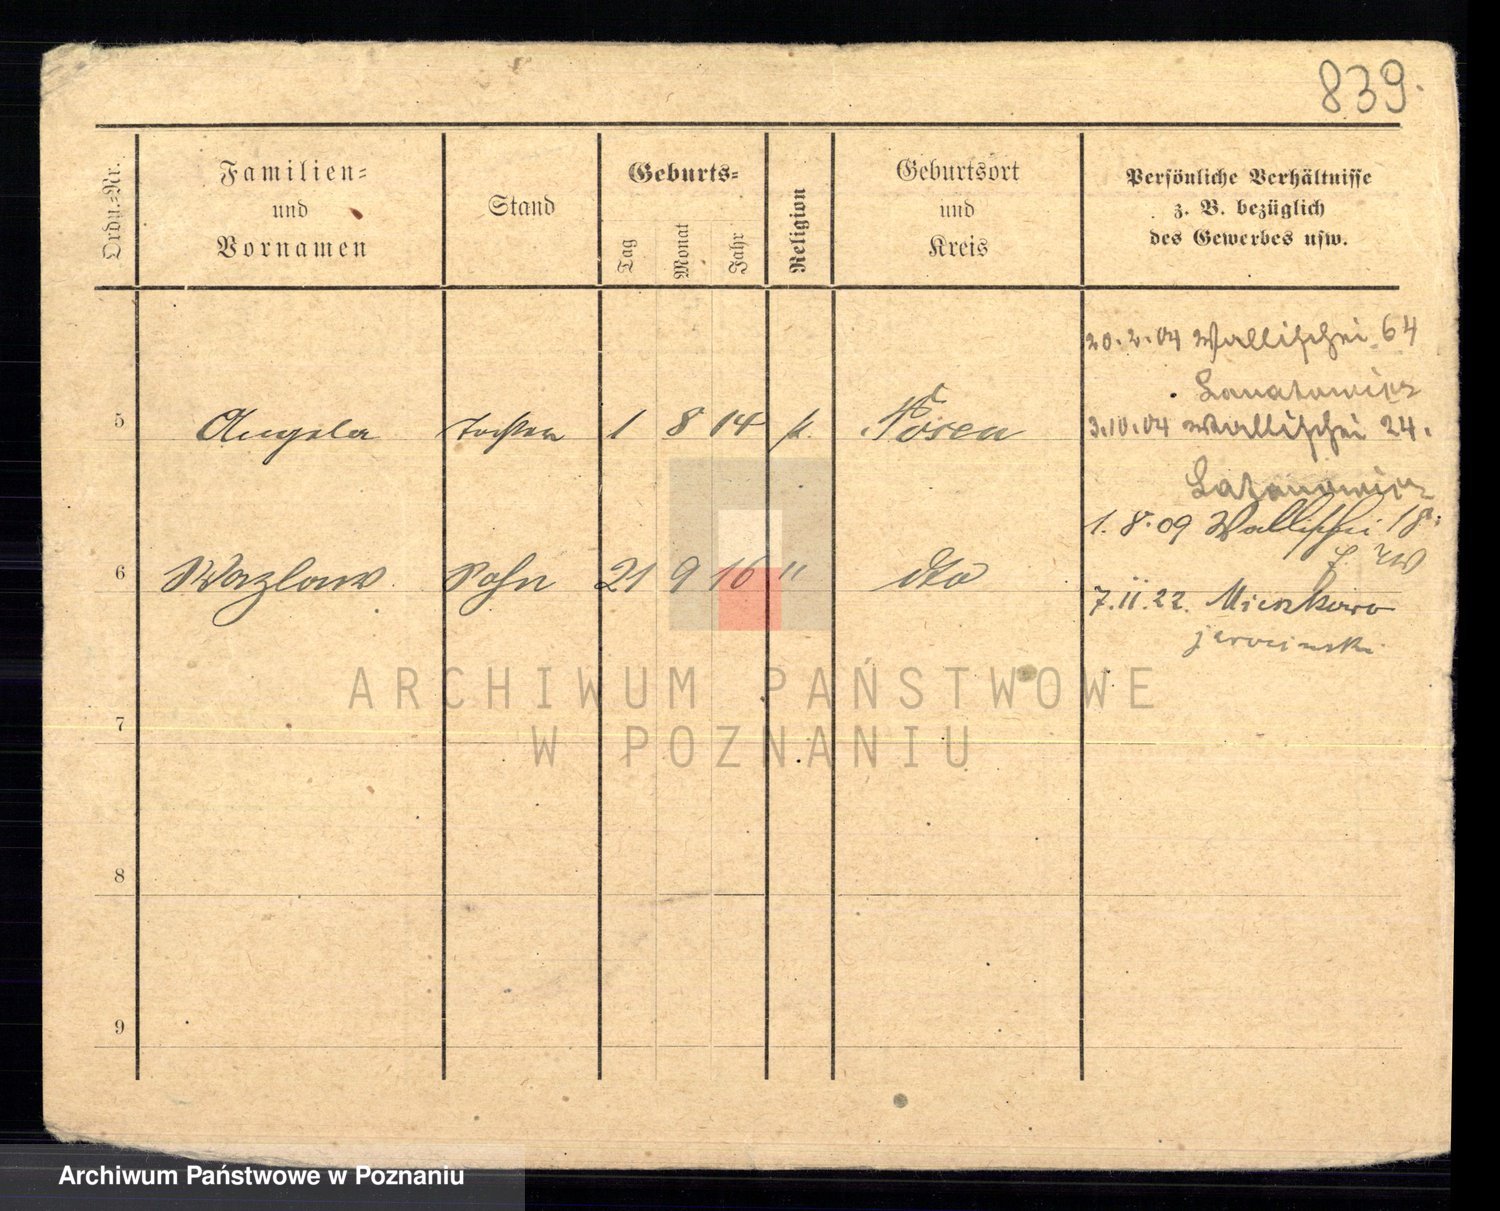 839.
Ordn.-Nr.
Familien-
und
Vornamen
Stand
Geburts-
Tag
Monat
Jahr
Religion
Geburtsort
und
Kreis
Persönliche Verhältnisse
z. B. bezüglich
des Gewerbes usw.
20.2.04 Wallischei 64
5 Angela Tochter 1 8 14 k. Posen
3.10.04 Wallischei 24.
1.8.09 Wallischei 18.
6 Wazlaw Sohn 21 9 16 " dto
7.11.22. Mieszkowo
jarocinski
7
8
9
ARCHIWUM PAŃSTWOWE
W POZNANIU
Archiwum Państwowe w Poznaniu